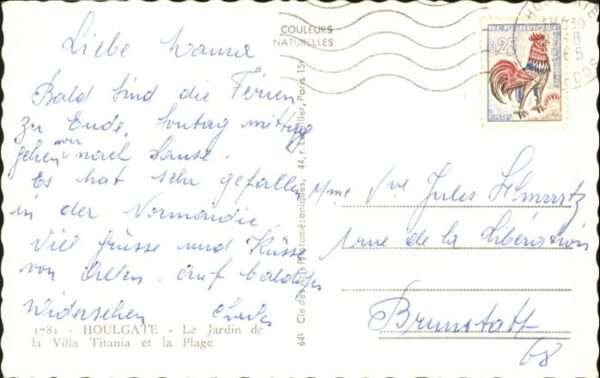 COULEURS
NATURELLES
Liebe Mama
Bald sind die Ferien
zu Ende, Sontag mittag
gehen wir nach Hause.
Es hat sehr gefallen
in der Normandie
Viel grüsse und Küsse
von allen. auf baldiges
widersehen
1781 - HOULGATE - Le Jardin de
la Villa Titania et la Plage
44, r. Letellier, Paris 15e
0,25
Mme Vve Jules Schwartz
1 rue de la Libération
Brunstatt
68